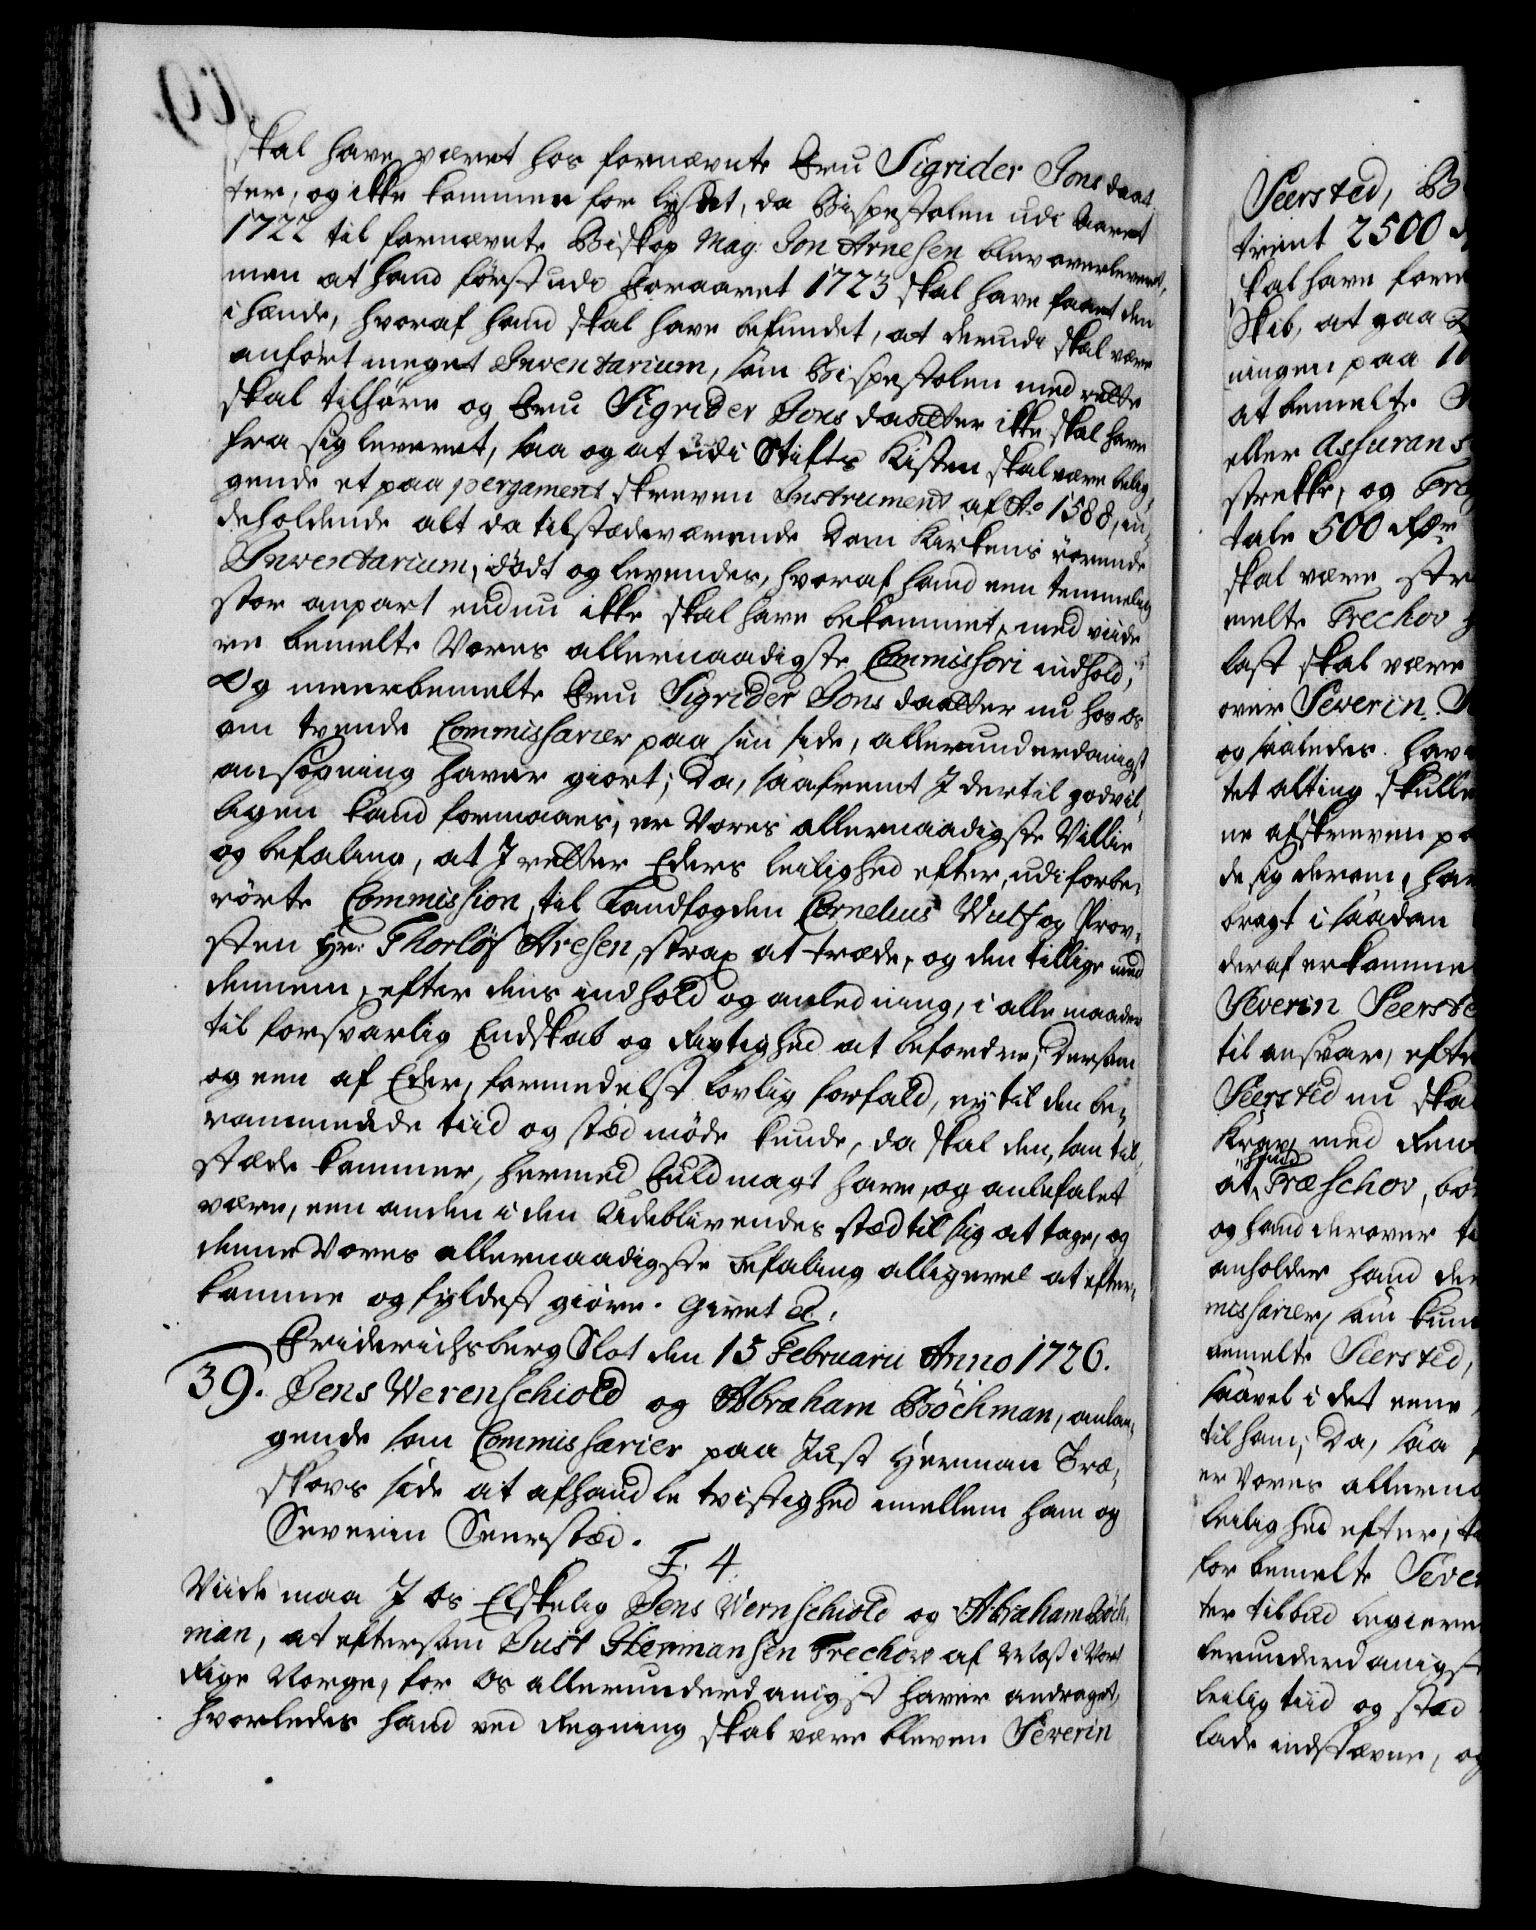 skal have været hos fornævnte Fru Sigrider Jons daat¬
ter, og ikke kommen for lyset, da Bispestolen udi Aaret
1722 til fornævnte Biskop Mag: Jon Arnesen blev overleveret,
men at hand først udi Foraaret 1723 skal have faaet den
i hænde, hvoraf hand skal have befundet, at derudi skal være
anført meget Inventarium, som Bispestolen med rætte
skal tilhøre og Fru Sigrider Jons daatter ikke skal have
fra sig leveret, saa og at udi Stifts Kisten skal være belig¬
gende et paa pergament skreven Instrument af Ao 1588, in¬
deholdende alt da tilstædeværende Dom Kirkens rørende
Inventarium, dødt og levendes, hvoraf hand een temmelig
stor anpart endnu ikke skal have bekommet, med viide¬
re bemelte Vores allernaadigste Commissori indhold,
Og meerbemelte Fru Sigrider Jons daatter nu hos os
om tvende Commissarier paa sin side, allerunderdanigst
ansøgning haver giort; Da, saafremt I dertil godvil¬
ligen kand formaaes, er Vores allernaadigste Villie
og befaling, at I retter Eders leilighed efter, udi forbe¬
rørte Commission, til Landfogden Cornelius Wulf og Prov¬
sten Hr: Thorløf Aresen, strax at træde, og den tillige med
dennem, efter dens indhold og anledning, i alle maader
til forsvarlig Endskab og Rigtighed at befordre; Dersom
og een af Eder, formedelst lovlig forfald, ey til den be¬
rammede tiid og stæd møde kunde, da skal den, som til¬
stæde kommer, hermed Fuldmagt have, og anbefalet
være, een anden i den Udeblivendes stæd til sig at tage, og
denne Vores allernaadigste Befaling alligevel at efter¬
komme og fyldest giøre. Givet &c:
Friderichsberg Slot den 15 Februarii Anno 1726.
39. Jens Werenschiold og Abraham Böchman, anlan¬
gende som Commissarier paa Just Herman Træ¬
skovs side at afhandle tvistighed imellem ham og
Severin Seerstæd.
F. 4.
Viide maa I os Elskelig Jens Wernschiold og Abraham Böch¬
man, at eftersom Just Hermansen Trechow af Moss i Vort
Rige Norge, for os allerunderdanigst haver andraget,
hvorledes hand ved Regning skal være bleven Severin
Seersted, B
trent 2500
skal have forn
Skib, at gaa
ningen paa
at bemelte
eller Assurans
strække, og Tre
tale 500 Rdr
skal være str
melte Trechov
last skal være
over Severin
og saaledes hav
tet alting skulle
ne afskreven p
de sig derom, har
bragt i saadan
deraf erkomme
Severin Seerste
til ansvar, efte
Seersted nu ska
Krav, med Ren
at hand Træschov, bo
og hand derover
anholder hand de
missarier, som kun
bemelte Seersted,
saavel i det eene
til ham; Da, saa
er Vores allerna
leilighed efter,
for bemelte Seve
ter tilbud legiere
lerunderdanigst
leilig tiid og stæd
lade indstævne, og